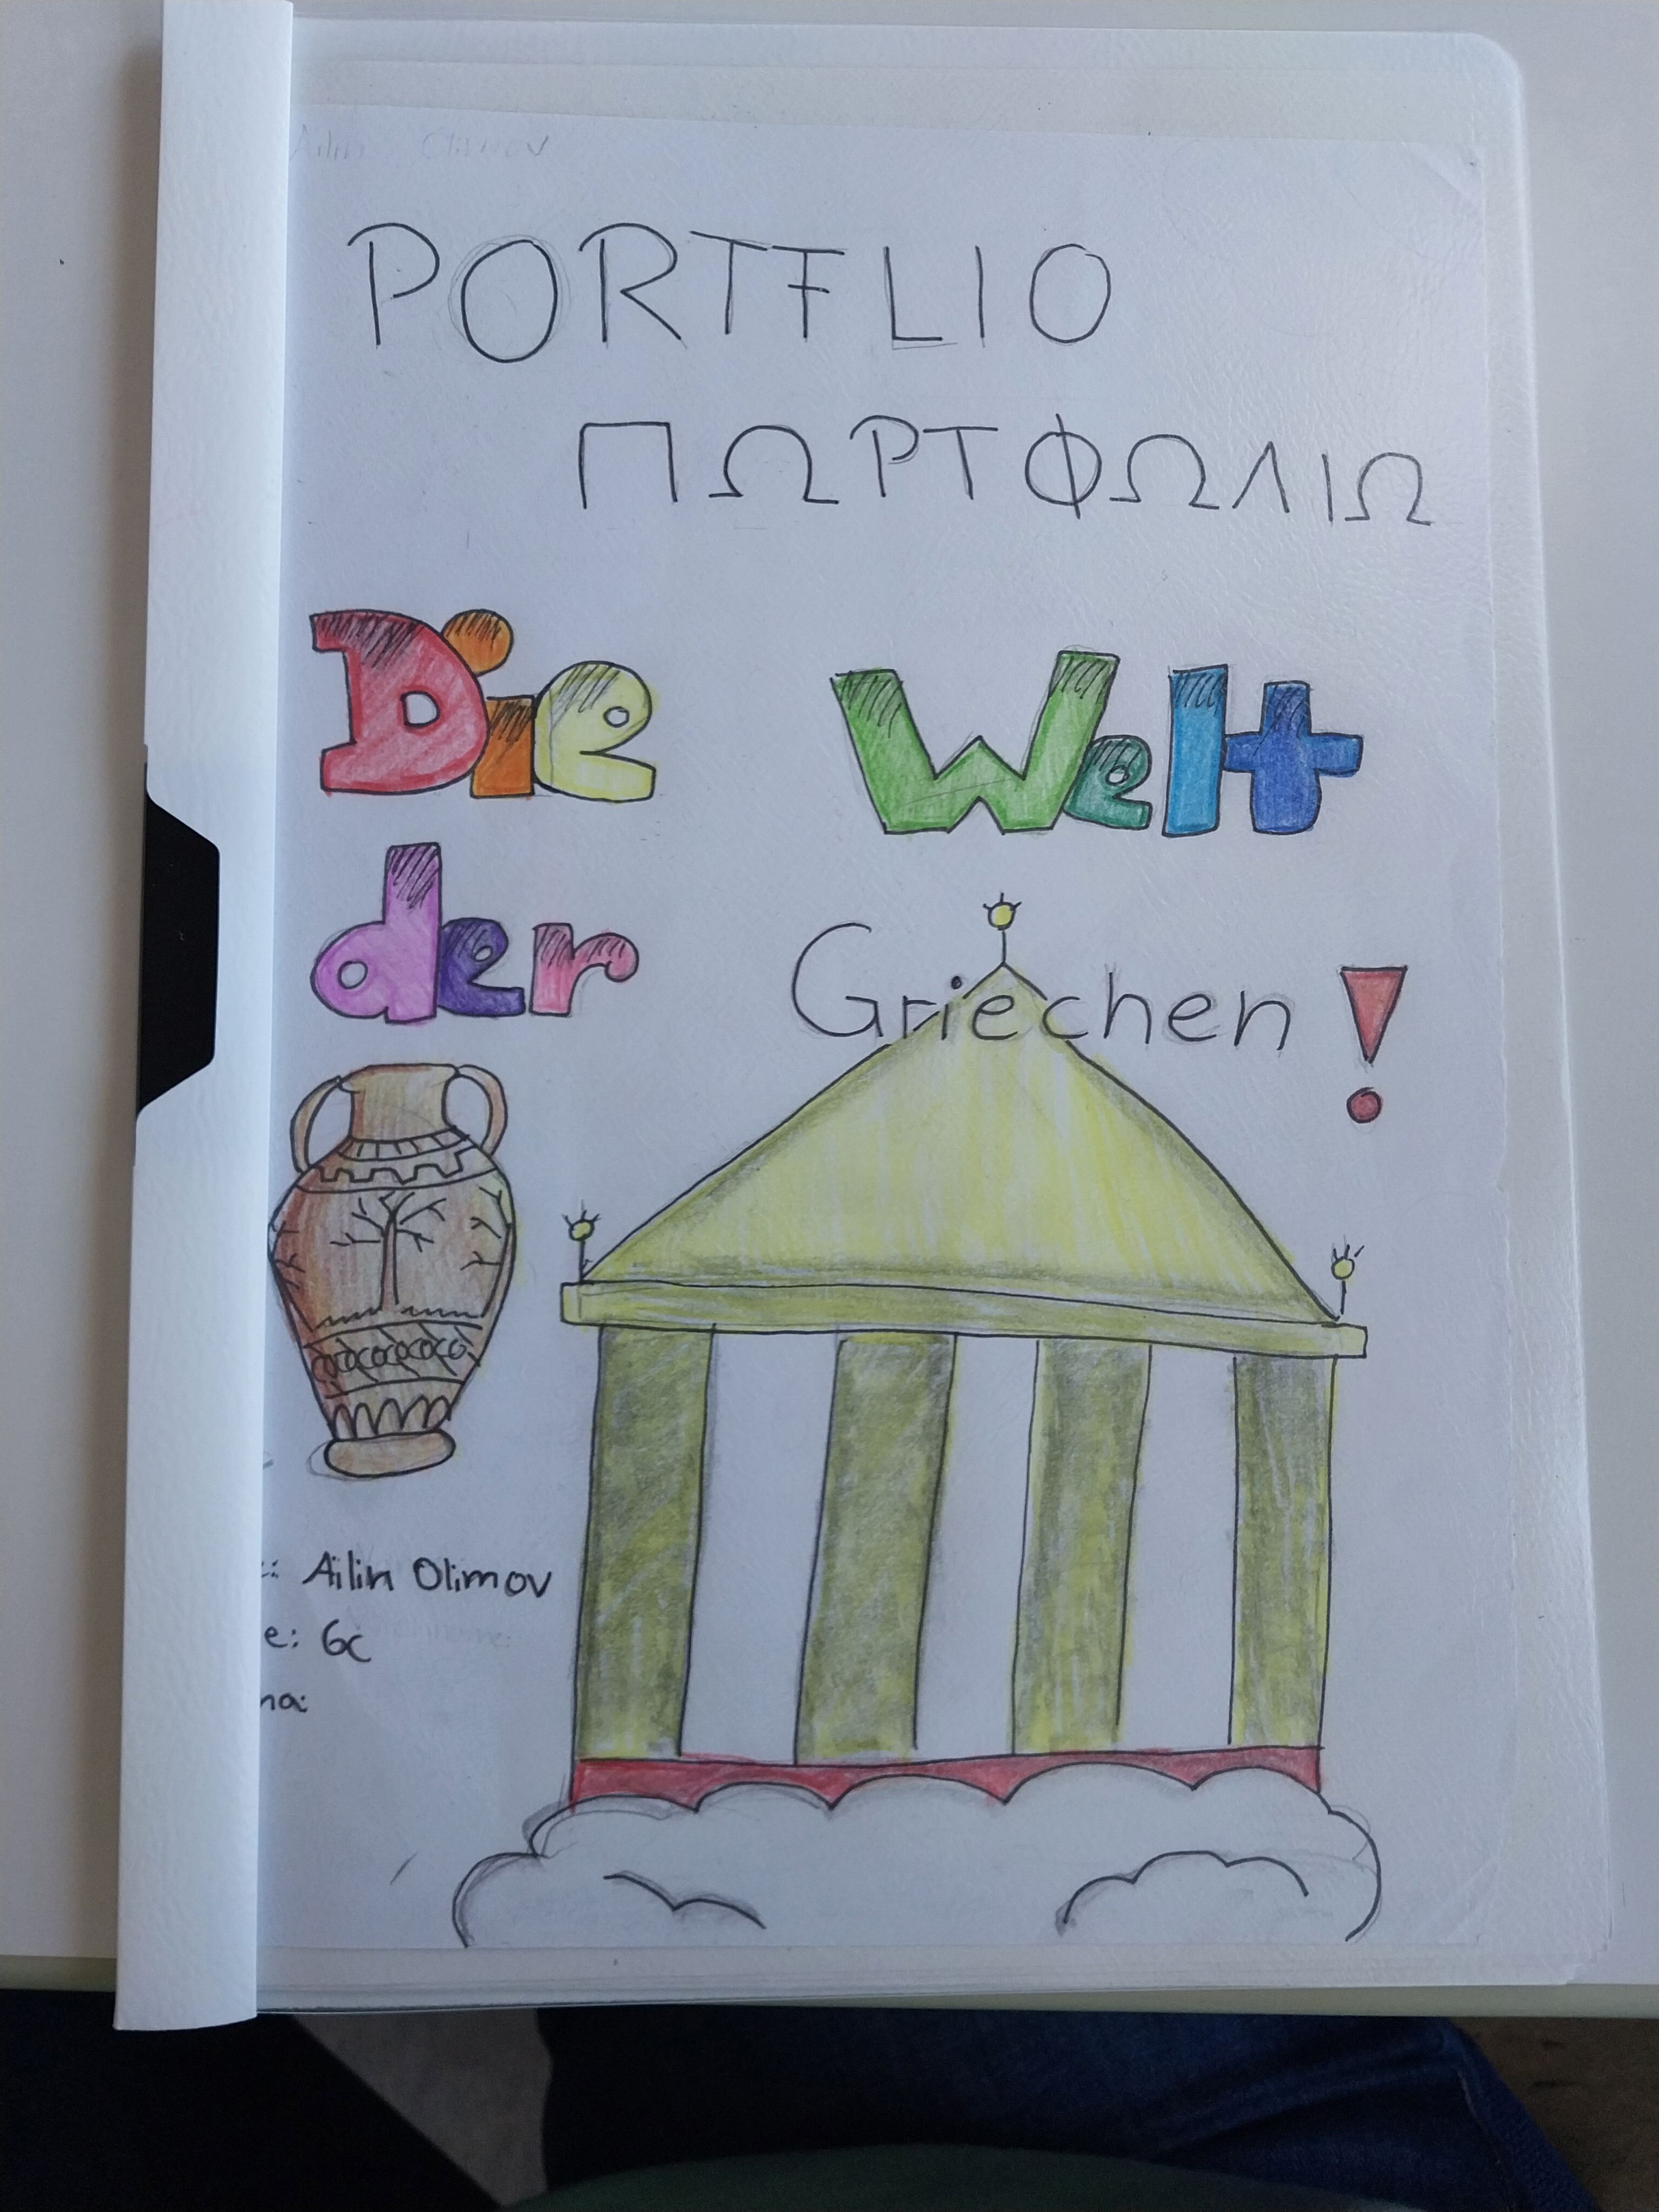 Ailin Olimov
PORTFLIO
ΠΩΡΤΦΩΛΙΩ
Die Welt
der Griechen!
: Ailin Olimov
e: 6c
ma: